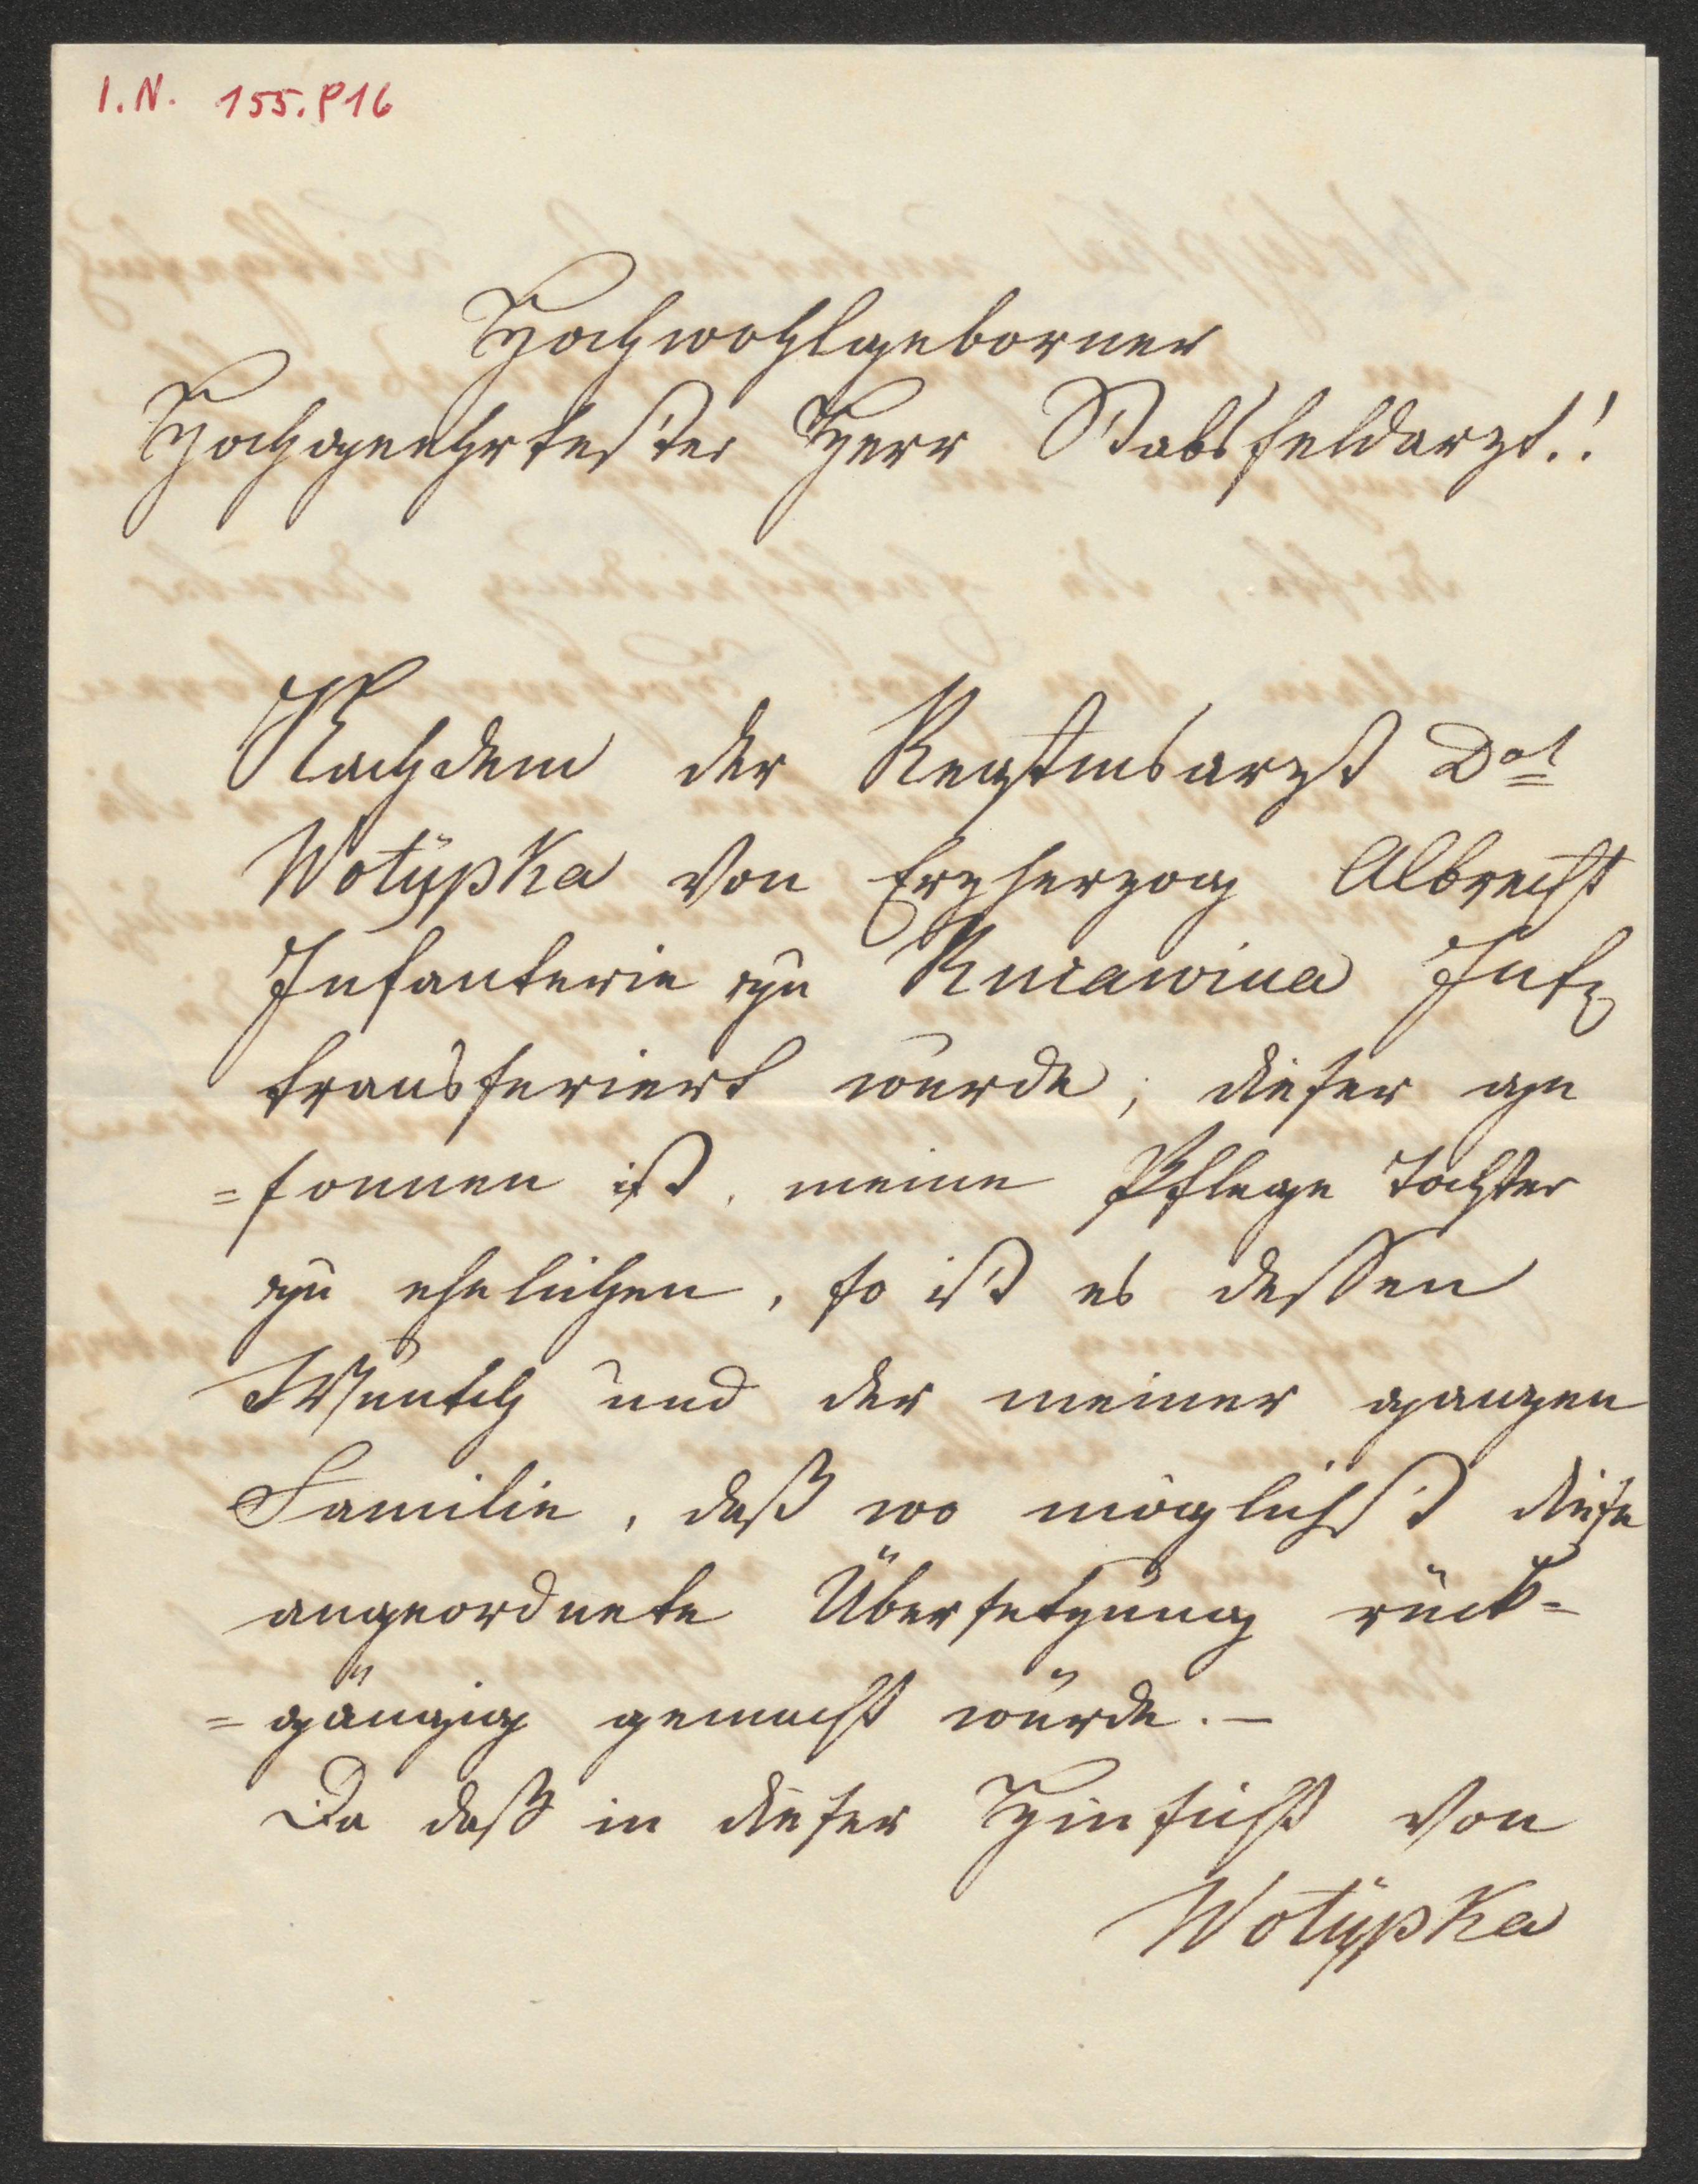 I.N. 155.816
Hochwohlgeborner
Hochgeehrtester Herr Stabsfeldarzt!
Nachdem der Regtmsarzt Dor
Wotÿpka von Erzherzog Albrecht
Infanterie zu Kudawina Inf
transferiert wurde, dieser ge
=sonnen ist, meine Pflege Tochter
zu ehelichen, so ist es dessen
Wunsch und der meiner ganzen
Familie, daß wo möglichst diese
angeordnete Übersetzung rück=
=gängig gemacht würde.—
Da daß in dieser Hinsicht von
Wotÿpka